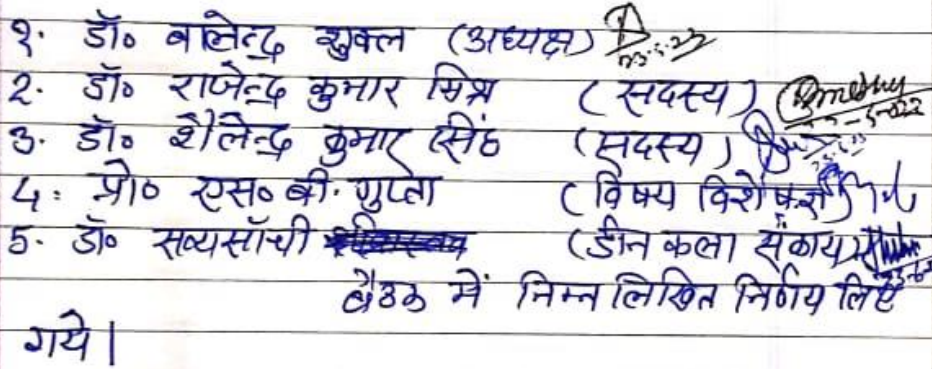 १. डॉ० बालेन्द्र शुक्ल (अध्यक्ष)
२. डॉ० राजेन्द्र कुमार मिश्र (सदस्य)
३. डॉ० शैलेन्द्र कुमार सिंह (सदस्य)
4. प्रो० एस० बी. गुप्ता (विषय विशेषज्ञ)
5. डॉ० सव्यसाँची (डीन कला संकाय)
बैठक में निम्न लिखित निर्णय लिए
गये |